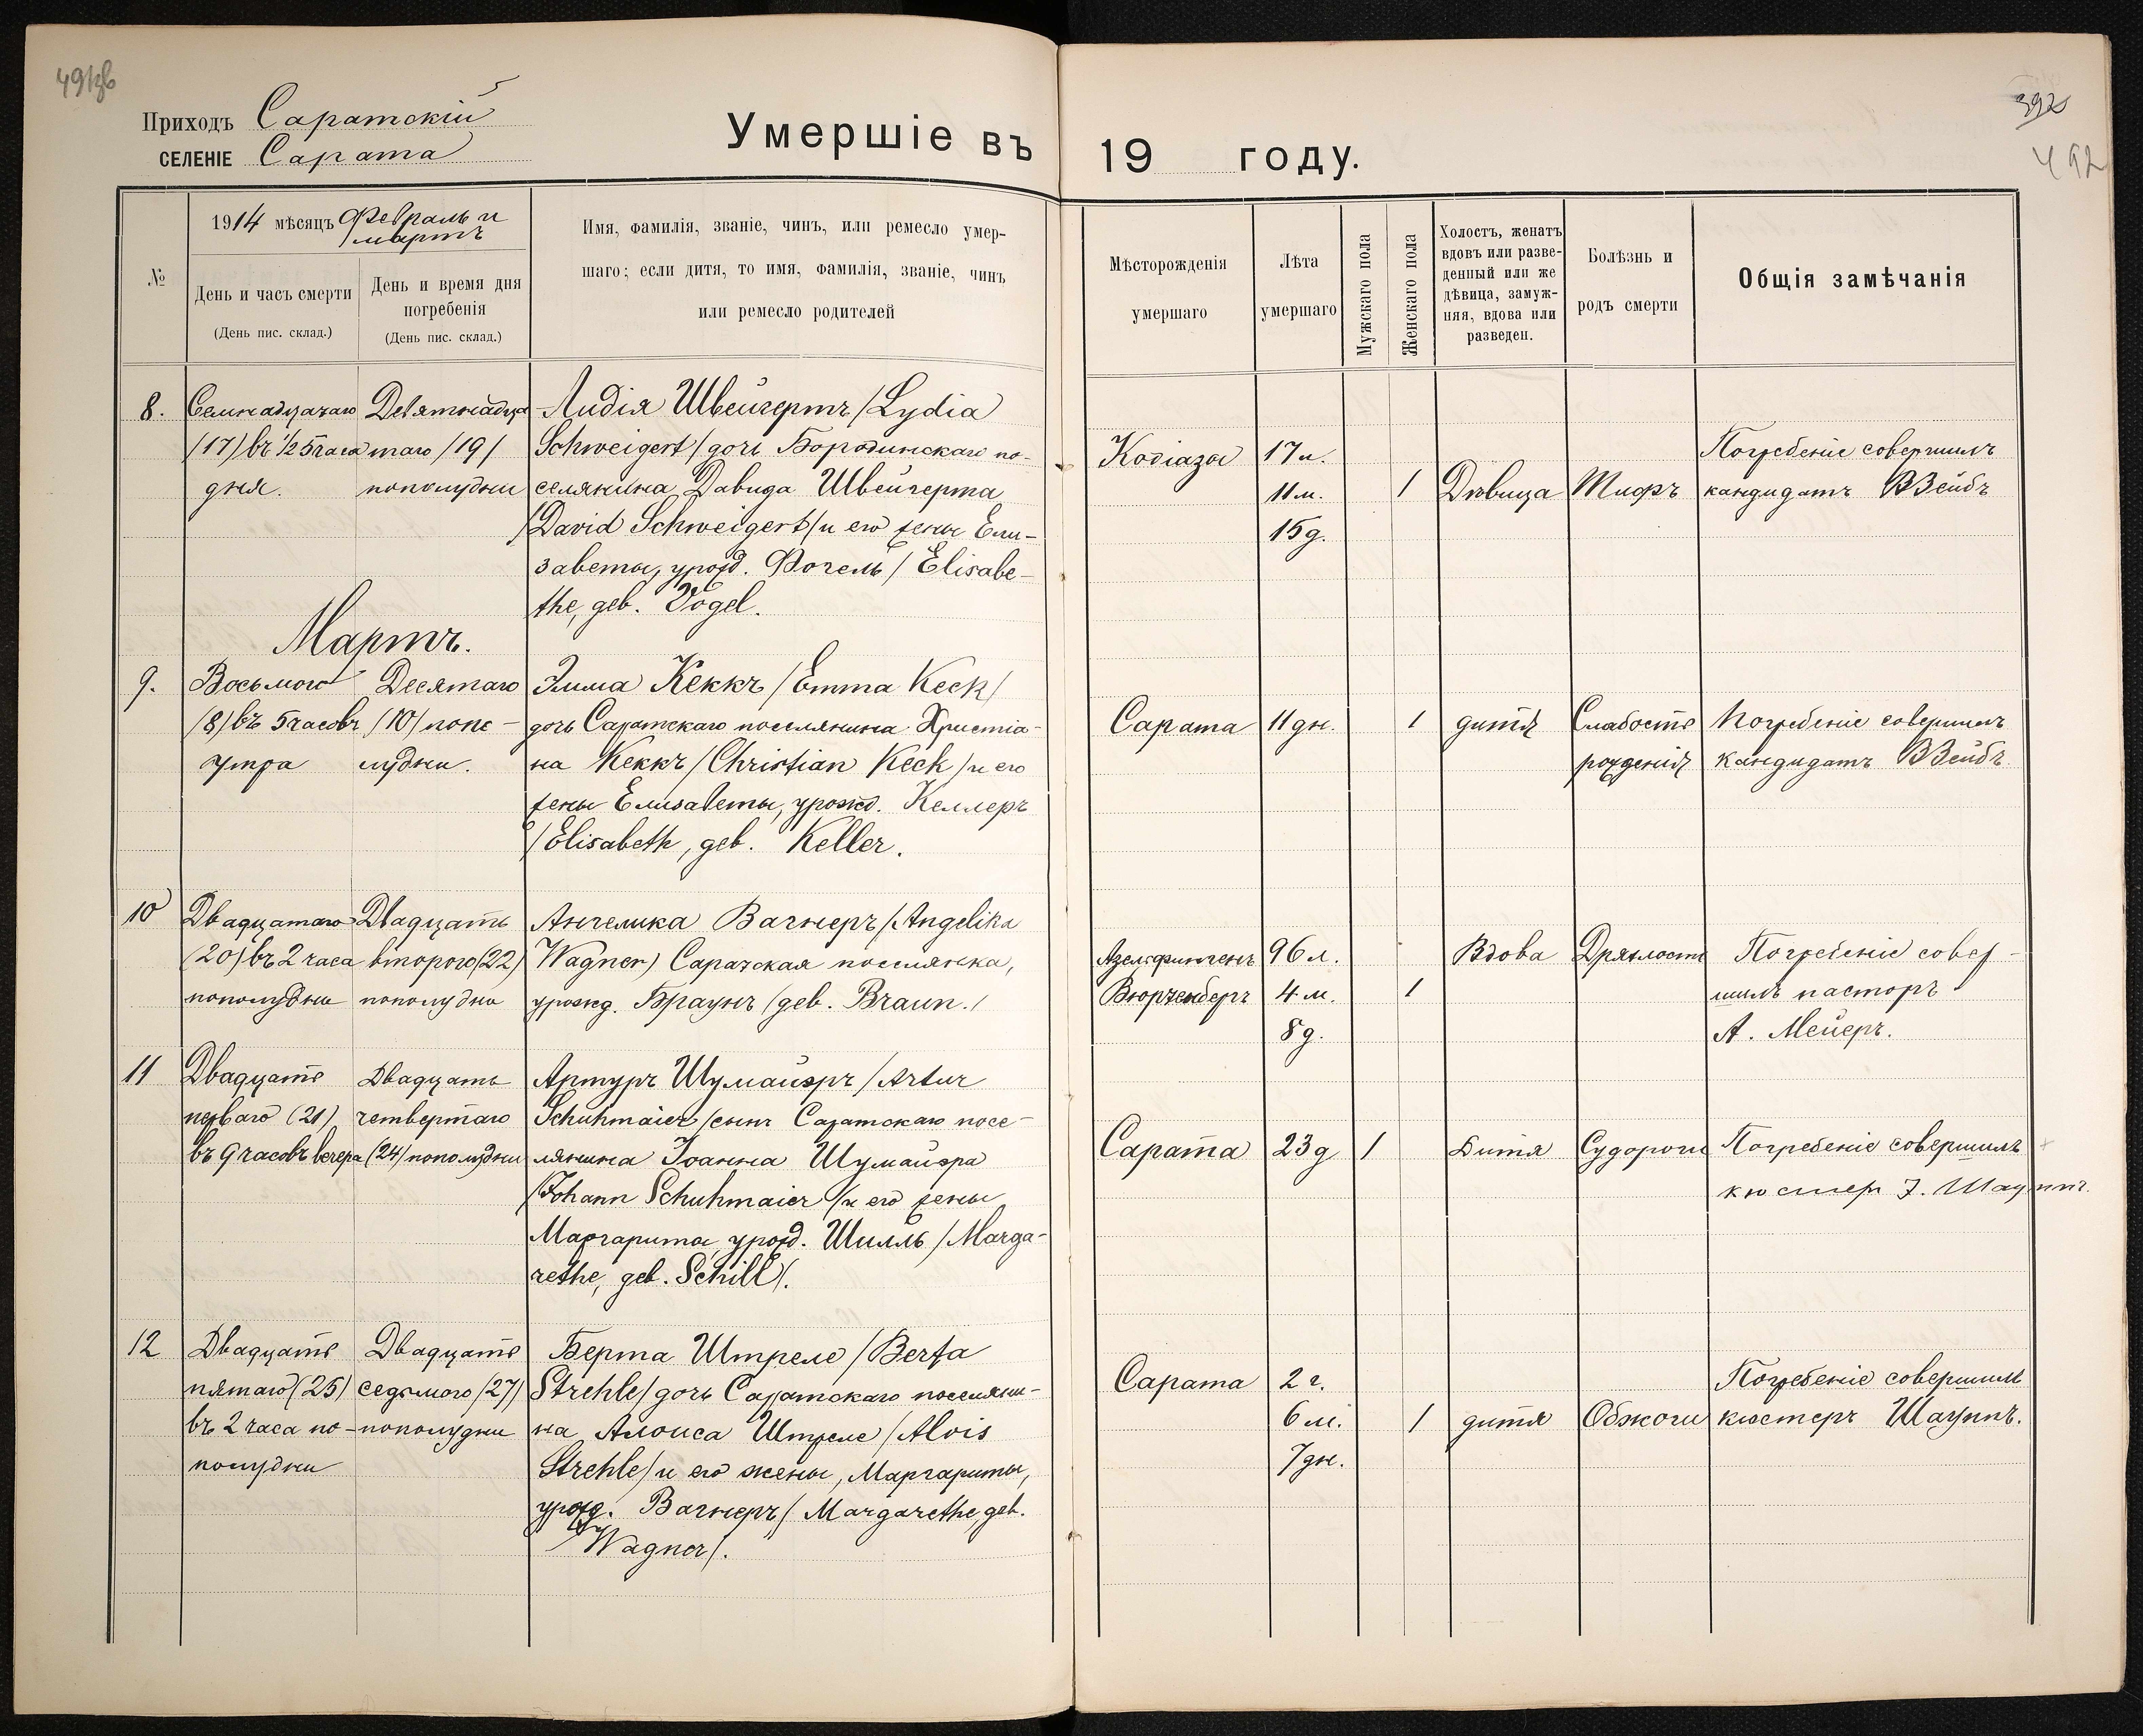 Приходъ Саратскій
СЕЛЕНІЕ Сарата
Умершіе въ 19 году.
392
492
№
1914 мѣсяцъ Февраль и
мартъ
День и часъ смерти
(День пис. склад.)
День и время дня
погребенія
(День пис. склад.)
Имя, фамилія, званіе, чинъ, или ремесло умер-
шаго; если дитя, то имя, фамилія, званіе, чинъ
или ремесло родителей
Мѣсторожденія
умершаго
Лѣта
умершаго
Мужскаго пола
Женскаго пола
Холостъ, женатъ
вдовъ или разве-
денный или же
дѣвица, замуж-
няя, вдова или
разведен.
Болѣзнь и
родъ смерти
Общія замѣчанія
8.
Семнадцатаго
(17) въ ½ 5 часа
дня.
Девятнадца
таго /19/
пополудни
Лидія Швейгертъ /Lydia
Schweigert/ дочь Бородинскаго по-
селянина Давида Швейгерта
/David Schweigert/ и его жены Ели-
заветы, урожд. Фогель / Elisabe-
the, geb. Vogel.
17 л.
11 м.
15 д.
1
Дѣвица
Тифъ
Погребеніе совершилъ
кандидатъ В Зейбъ
Мартъ.
9.
Восьмого
/8/ въ 5 часовъ
утра
Десятаго
/10/ попо-
лудни.
Эмма Кеккъ /Emma Keck/
дочь Саратскаго поселянина Христіа-
на Кеккъ /Christian Keck/ и его
жены Елизаветы, урожд. Келлеръ
/Elisabeth, geb. Keller.
Сарата
11 дн.
1
дитя
Слабость
рожденія
Погребеніе совершилъ
кандидатъ В Зейбъ
10
Двадцатаго
(20) въ 2 часа
пополудни
Двадцать
второго (22)
пополудни
Ангелика Вагнеръ /Angelika
Wagner) Саратская поселянка,
урожд. Браунъ (geb. Braun./
Вюртембергъ
96 л.
4 м.
8 д.
1
Вдова
Дряхлость
Погребеніе совер-
шилъ пасторъ
А. Мейеръ.
11
Двадцать
перваго (21)
въ 9 часовъ вечера
Двадцать
четвертаго
(24) пополудни
Артуръ Шумайэръ /Artur
Schuhmaier/ сынъ Саратскаго посе-
лянина Іоанна Шумайэра
/Johann Schuhmaier/ и его жены
Маргариты, урожд. Шилль /Marga-
rethe, geb. Schill/.
Сарата
23 д
1
Дитя
Судороги
Погребеніе совершилъ
кюстеръ І. Шауппъ.
12
Двадцать
пятаго (25)
въ 2 часа по-
полудни
Двадцать
седьмого /27/
пополудни
Берта Штреле /Berta
Strehle/ дочь Саратскаго поселяни-
на Алоиса Штреле /Alois
Strehle/ и его жены, Маргариты,
урожд. Вагнеръ / Margarethe, geb.
Wagner/.
Сарата
2 г.
6 м.
7 дн.
1
дитя
Обжоги
Погребеніе совершилъ
кюстеръ Шауппъ.